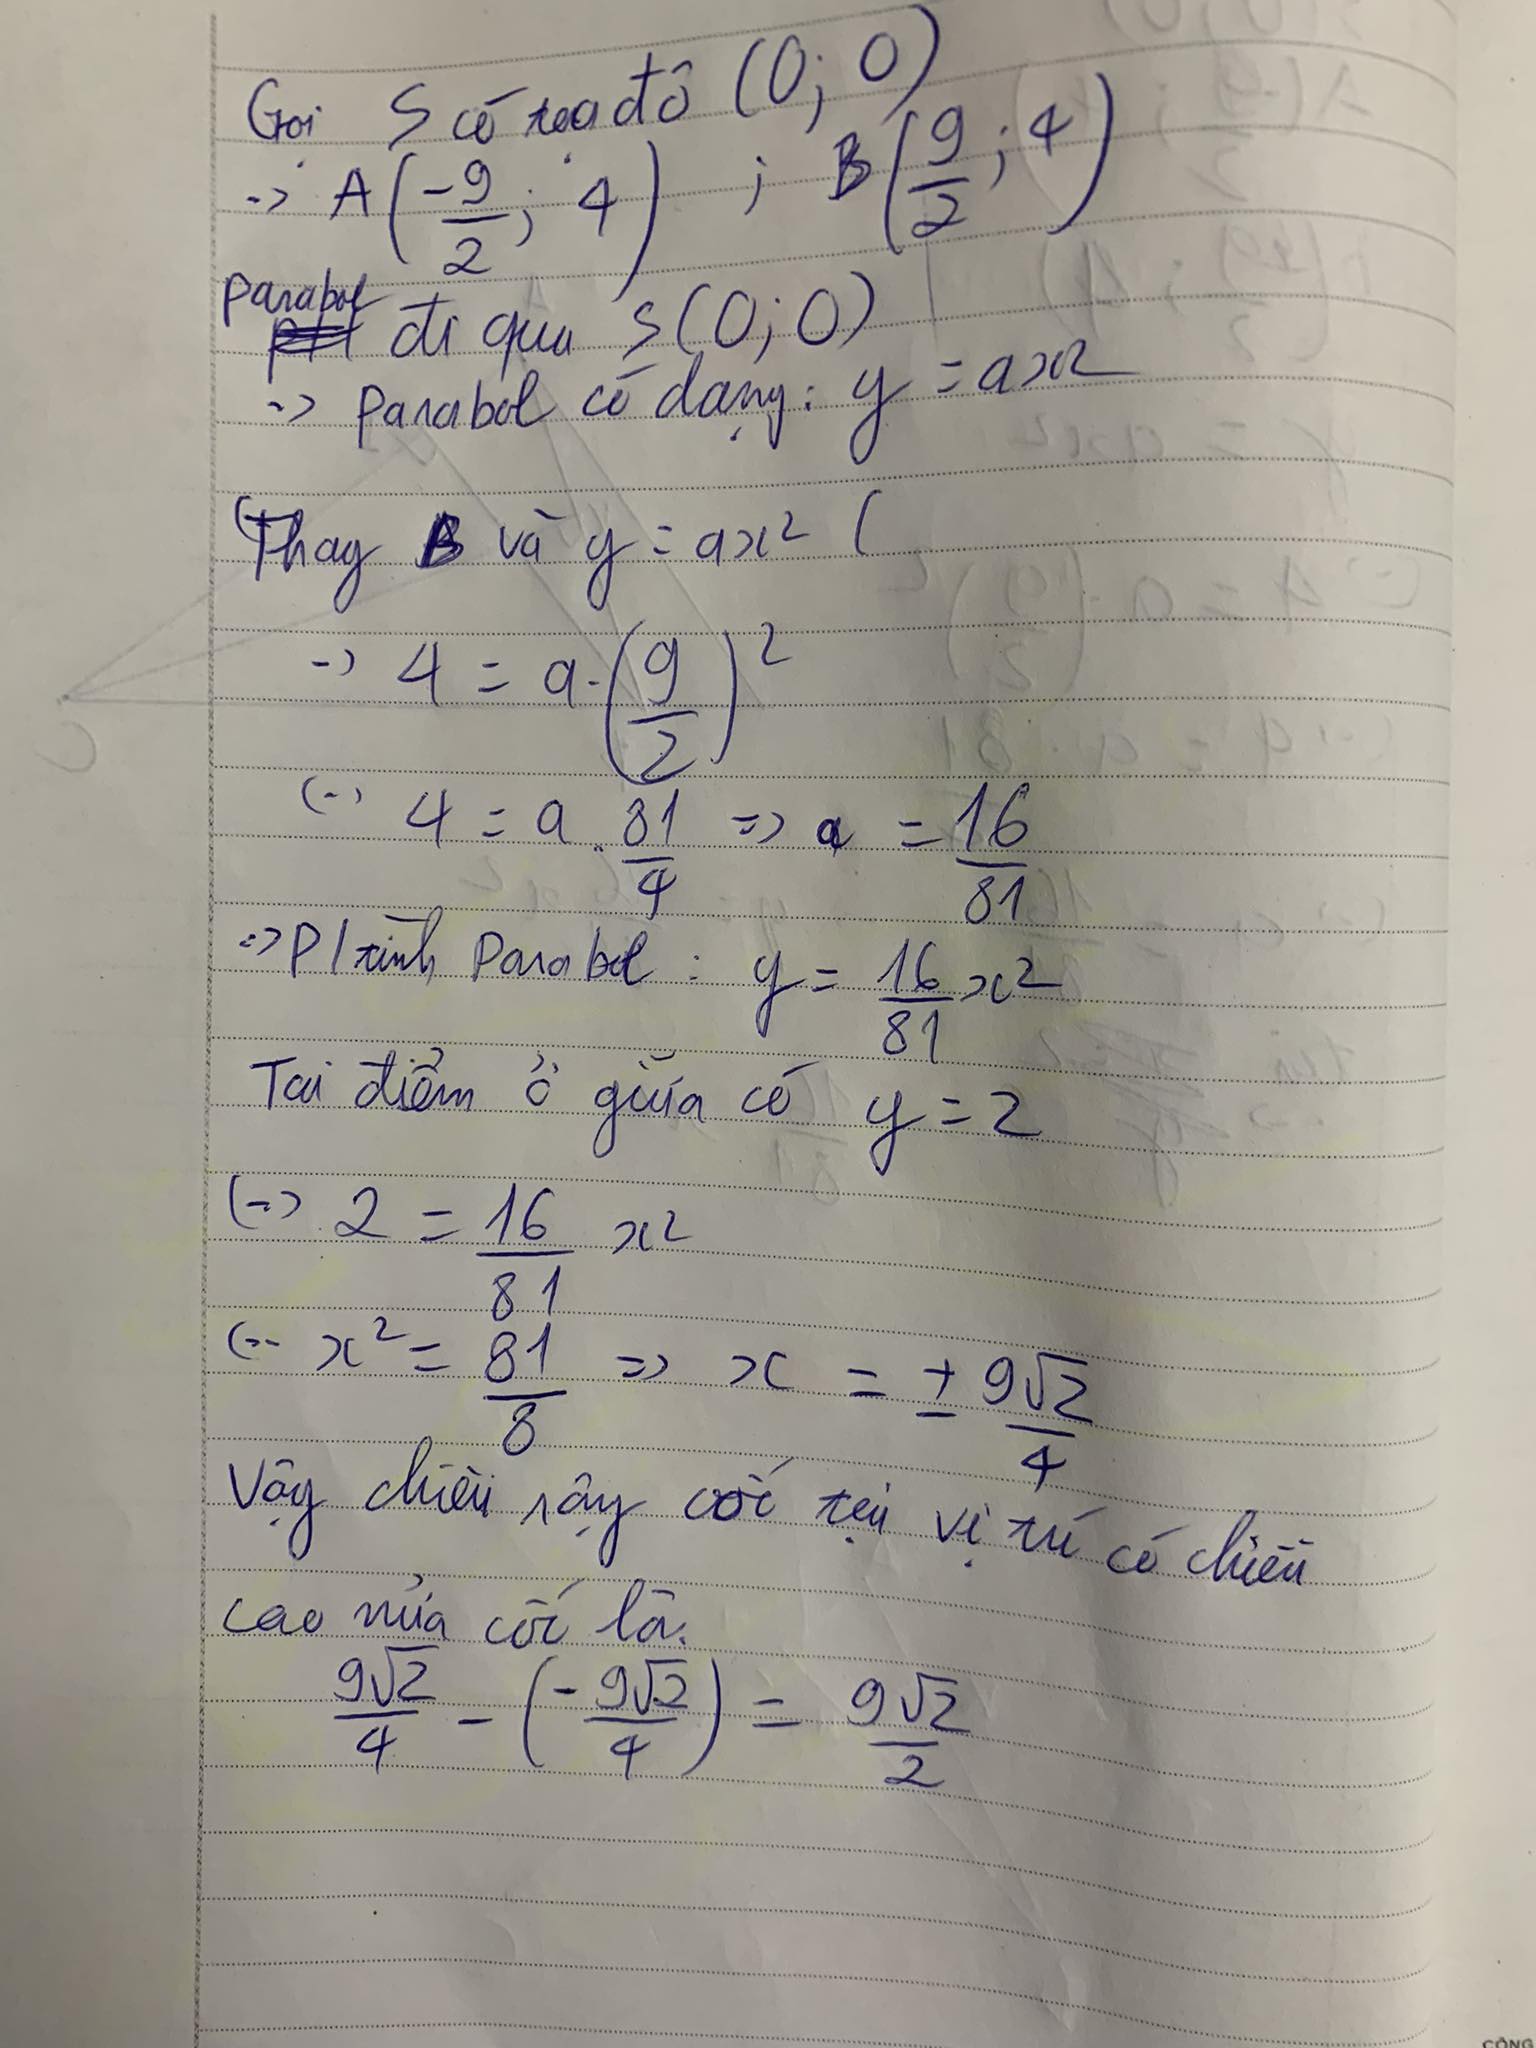 Gọi S có tọa độ (0; 0)
-> A(-9/2; 4) ; B(9/2; 4)
Parabol đi qua S(0; 0)
-> Parabol có dạng: y = ax²
Thay B và y = ax² (
-> 4 = a.(9/2)²
(-> 4 = a . 81/4 => a = 16/81
=> P/trình Parabol : y = 16/81 x²
Tại điểm ở giữa có y = 2
(-> 2 = 16/81 x²
(-- x² = 81/8 => x = ± 9√2/4
Vậy chiều cốc tại vị trí có chiều
cao nửa cốc là.
9√2/4 - (-9√2/4) = 9√2/2
CÔNG